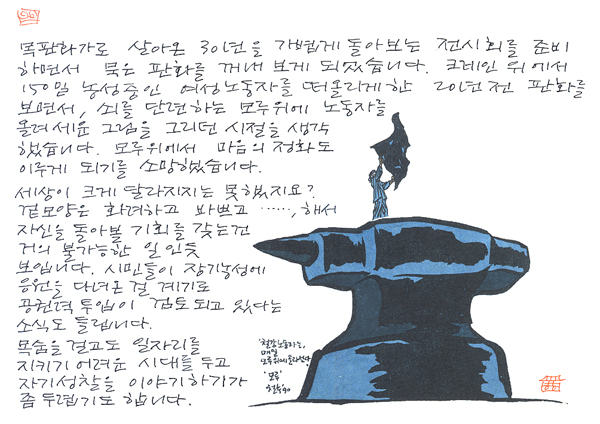 목판화가로 살아온 30년을 가볍게 돌아보는 전시회를 준비
하면서 묵은 판화를 꺼내 보게 되었습니다. 크레인 위에서
150일 농성중인 여성노동자를 떠올리게 한 20년전 판화를
보면서, 쇠를 단련하는 모루위에 노동자를
올려세운 그림을 그리던 시절을 생각
했습니다. 모루위에서 마음의 정화도
이루게 되기를 소망했습니다.
세상이 크게 달라지지는 못했지요?
겉모양은 화려하고 바쁘고 ……, 해서
자신을 돌아볼 기회를 갖는건
거의 불가능한 일인듯
보입니다. 시민들이 장기농성에
응원을 다녀온걸 계기로
공권력 투입이 검토되고 있다는
소식도 들립니다.
목숨을 걸고도 일자리를
지키기 어려운 시대를 두고
자기성찰을 이야기하기가
좀 두렵기도 합니다.
매일
모루위에
모루
철수90